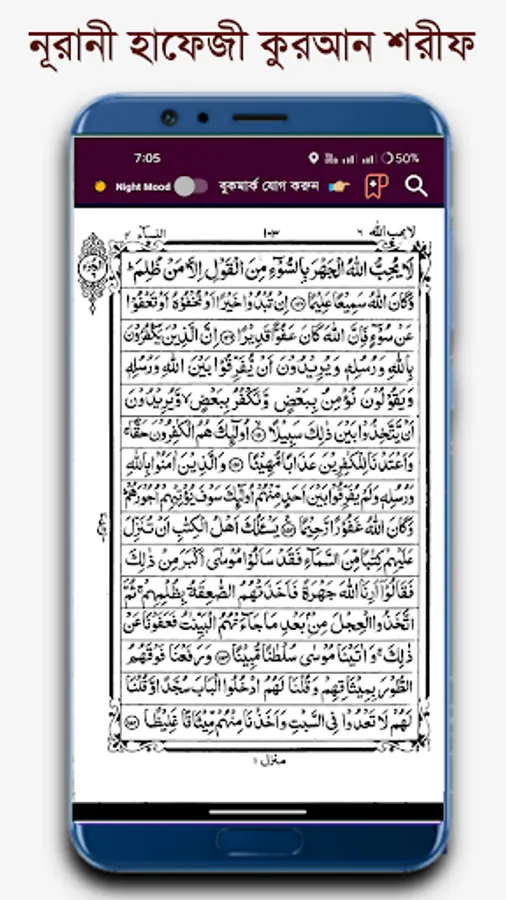 নূরানী হাফেজী কুরআন শরীফ
7:05 50%
Night Mood বুকমার্ক যোগ করুন
لا يحب الله ٦ ١٠٣ النسآء ٤
لَا يُحِبُّ اللّٰهُ الْجَهْرَ بِالسُّوْٓءِ مِنَ الْقَوْلِ اِلَّا مَنْ ظُلِمَ ؕ
وَكَانَ اللّٰهُ سَمِيْعًا عَلِيْمًا ﴿۱۴۸﴾ اِنْ تُبْدُوْا خَيْرًا اَوْ تُخْفُوْهُ اَوْ تَعْفُوْا
عَنْ سُوْٓءٍ فَاِنَّ اللّٰهَ كَانَ عَفُوًّا قَدِيْرًا ﴿۱۴۹﴾ اِنَّ الَّذِيْنَ يَكْفُرُوْنَ
بِاللّٰهِ وَرُسُلِهٖ وَيُرِيْدُوْنَ اَنْ يُّفَرِّقُوْا بَيْنَ اللّٰهِ وَرُسُلِهٖ
وَيَقُوْلُوْنَ نُؤْمِنُ بِبَعْضٍ وَّنَكْفُرُ بِبَعْضٍ ۙ وَّيُرِيْدُوْنَ
اَنْ يَّتَّخِذُوْا بَيْنَ ذٰلِكَ سَبِيْلًا ﴿۱۵۰﴾ اُولٰٓئِكَ هُمُ الْكٰفِرُوْنَ حَقًّا ۚ
وَاَعْتَدْنَا لِلْكٰفِرِيْنَ عَذَابًا مُّهِيْنًا ﴿۱۵۱﴾ وَالَّذِيْنَ اٰمَنُوْا بِاللّٰهِ
وَرُسُلِهٖ وَلَمْ يُفَرِّقُوْا بَيْنَ اَحَدٍ مِّنْهُمْ اُولٰٓئِكَ سَوْفَ يُؤْتِيْهِمْ اُجُوْرَهُمْ
وَكَانَ اللّٰهُ غَفُوْرًا رَّحِيْمًا ﴿۱۵۲﴾ يَسْـَٔلُكَ اَهْلُ الْكِتٰبِ اَنْ تُنَزِّلَ
عَلَيْهِمْ كِتٰبًا مِّنَ السَّمَآءِ فَقَدْ سَاَلُوْا مُوْسٰٓى اَكْبَرَ مِنْ ذٰلِكَ
فَقَالُوْٓا اَرِنَا اللّٰهَ جَهْرَةً فَاَخَذَتْهُمُ الصّٰعِقَةُ بِظُلْمِهِمْ ۚ ثُمَّ
اتَّخَذُوا الْعِجْلَ مِنْۢ بَعْدِ مَا جَآءَتْهُمُ الْبَيِّنٰتُ فَعَفَوْنَا عَنْ
ذٰلِكَ ۚ وَاٰتَيْنَا مُوْسٰى سُلْطٰنًا مُّبِيْنًا ﴿۱۵۳﴾ وَرَفَعْنَا فَوْقَهُمُ
الطُّوْرَ بِمِيْثَاقِهِمْ وَقُلْنَا لَهُمُ ادْخُلُوا الْبَابَ سُجَّدًا وَّقُلْنَا
لَهُمْ لَا تَعْدُوْا فِى السَّبْتِ وَاَخَذْنَا مِنْهُمْ مِّيْثَاقًا غَلِيْظًا ﴿۱۵۴﴾
منزل ١